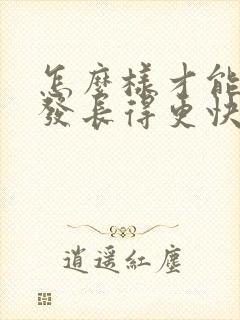 怎麼樣才能
發長得更快
逍遥紅塵